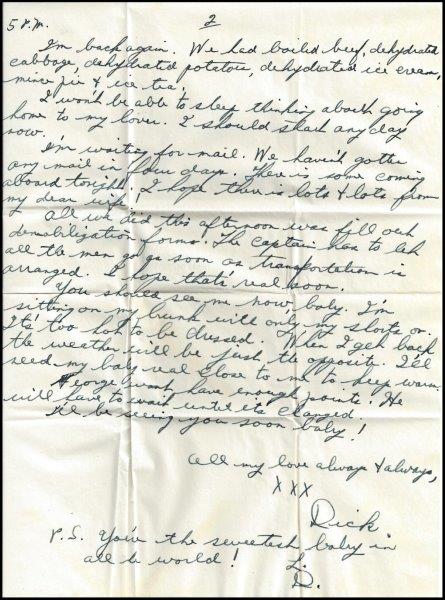 5 P.M.
2
I'm back again. We had boiled beef, dehydrated
cabbage, dehydrated potatoes, dehydrated ice cream,
mince pie & ice tea.
I won't be able to sleep thinking about going
home to my lover. I should start any day
now.
I'm waiting for mail. We haven't gotten
any mail in four days. There is some coming
aboard tonight. I hope there is lots & lots from
my dear wife.
All we did this afternoon was fill out
demobilization forms. The captain has to let
all the men go as soon as transportation is
arranged. I hope that's real soon.
You should see me now, baby. I'm
sitting on my bunk with only my shorts on.
It's too hot to be dressed. When I get back
the weather will be just the opposite. I'll
need my baby real close to me to keep warm.
George won't have enough points. He
will have to wait until it's changed.
I'll be seeing you soon baby!
All my love always & always,
XXX
Dick
P.S. You're the sweetest baby in
all the world!
L.
D.